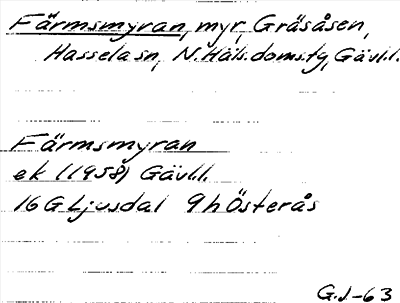 Färmsmyran, myr, Gräsåsen,
Hassela sn, N. Häls. doms. tg, Gävl.l.
Färmsmyran
ek (1958) Gävl.l.
16 G Ljusdal 9 h Österås
G.J-63